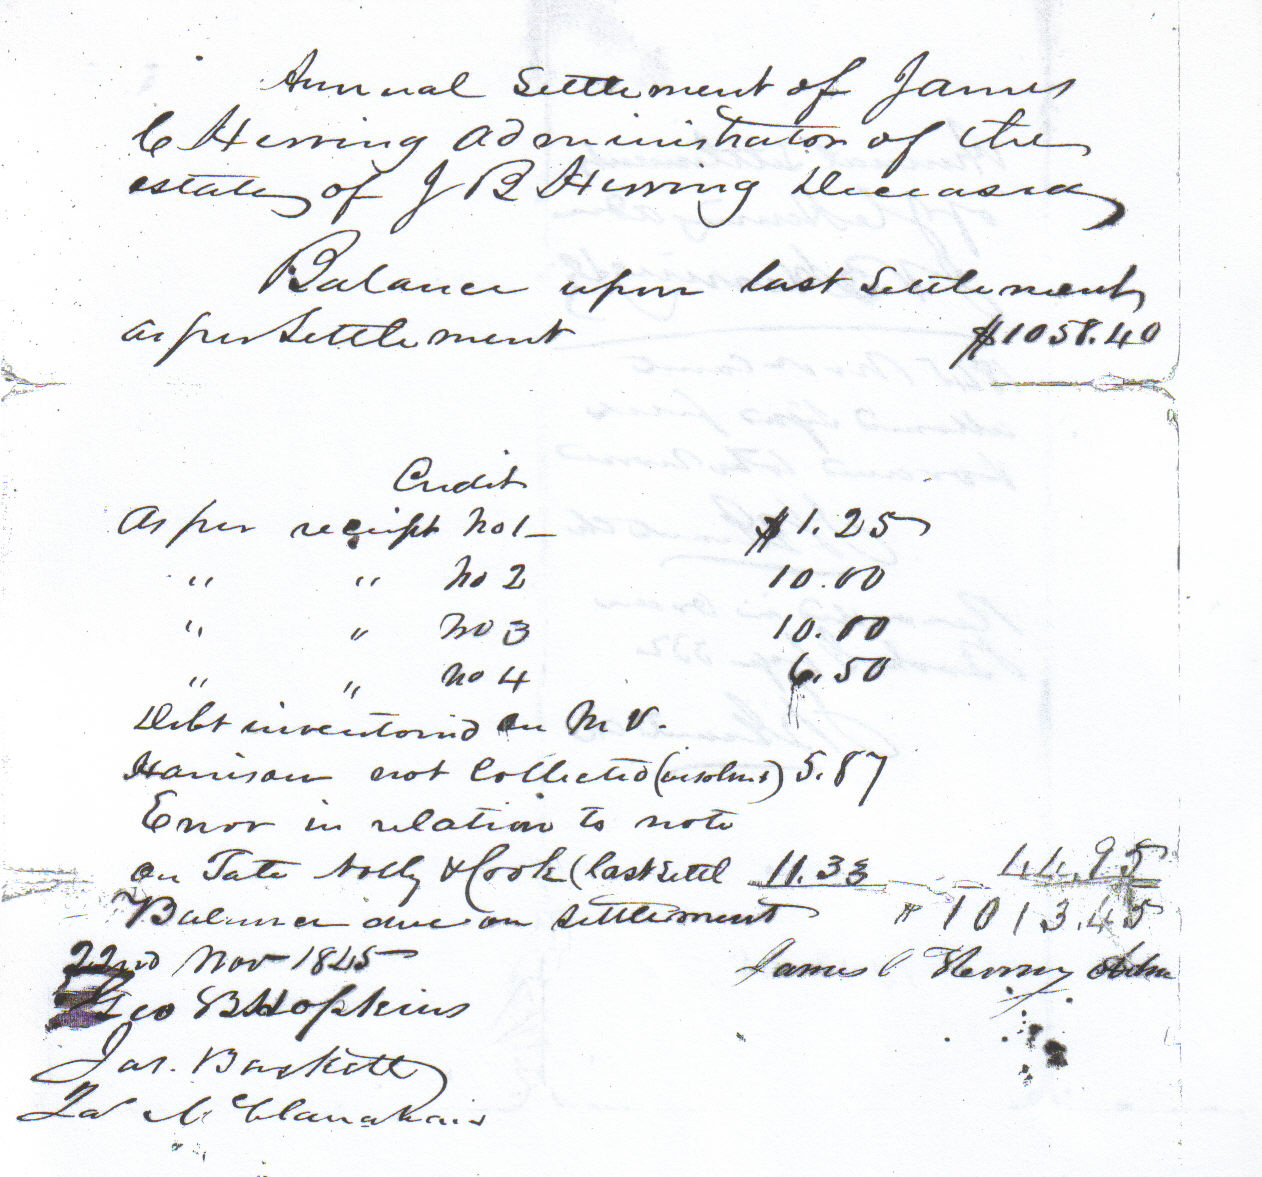 Annual Settlement of James
C Herring Administrator of the
estate of J B Herring Deceased
Balance upon last Settlement
as per Settlement $1058.40
Credit
As per receipt No 1 $1.25
" " No 2 10.00
" " No 3 10.00
" " No 4 6.50
Debt inventoried on M V.
Harrison not Collected (insolvent) 5.87
Error in relation to note
on Tate Nolly & Cook (last Settl 11.33 44.95
Balance due on Settlement $1013.45
22nd Nov 1845 James C Herring Adm
Geo B Hopkins
Jas. Baskett
McClanahan